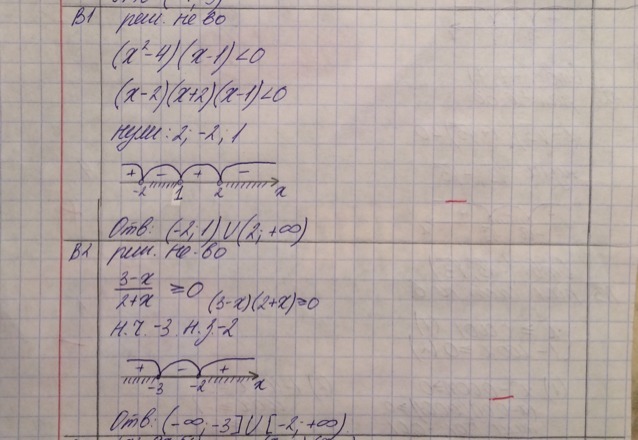 В1 реш. не-во
(x²-4)(x-1)<0
(x-2)(x+2)(x-1)<0
нули: 2; -2; 1
+ - + -
-2 1 2 x
Отв: (-2; 1) ∪ (2; +∞)
В2 реш. не-во
3-x
2+x ≥0 (3-x)(2+x)≥0
н.ч. -3 н.з -2
+ - +
-3 -2 x
Отв: (-∞; -3] ∪ [-2; +∞)